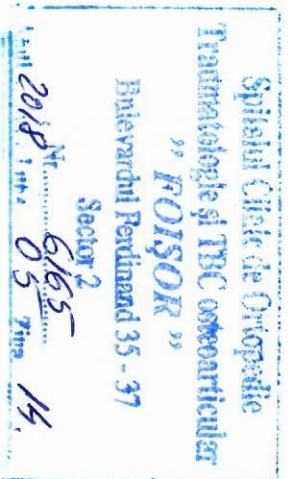 Spitalul Clinic de Ortopedie
Traumatologie și TBC osteoarticular
" FOIȘOR "
Bulevardul Ferdinand 35 - 37
Sector 2
Nr. 6165
Anul 2018 Luna 05 Ziua 14.